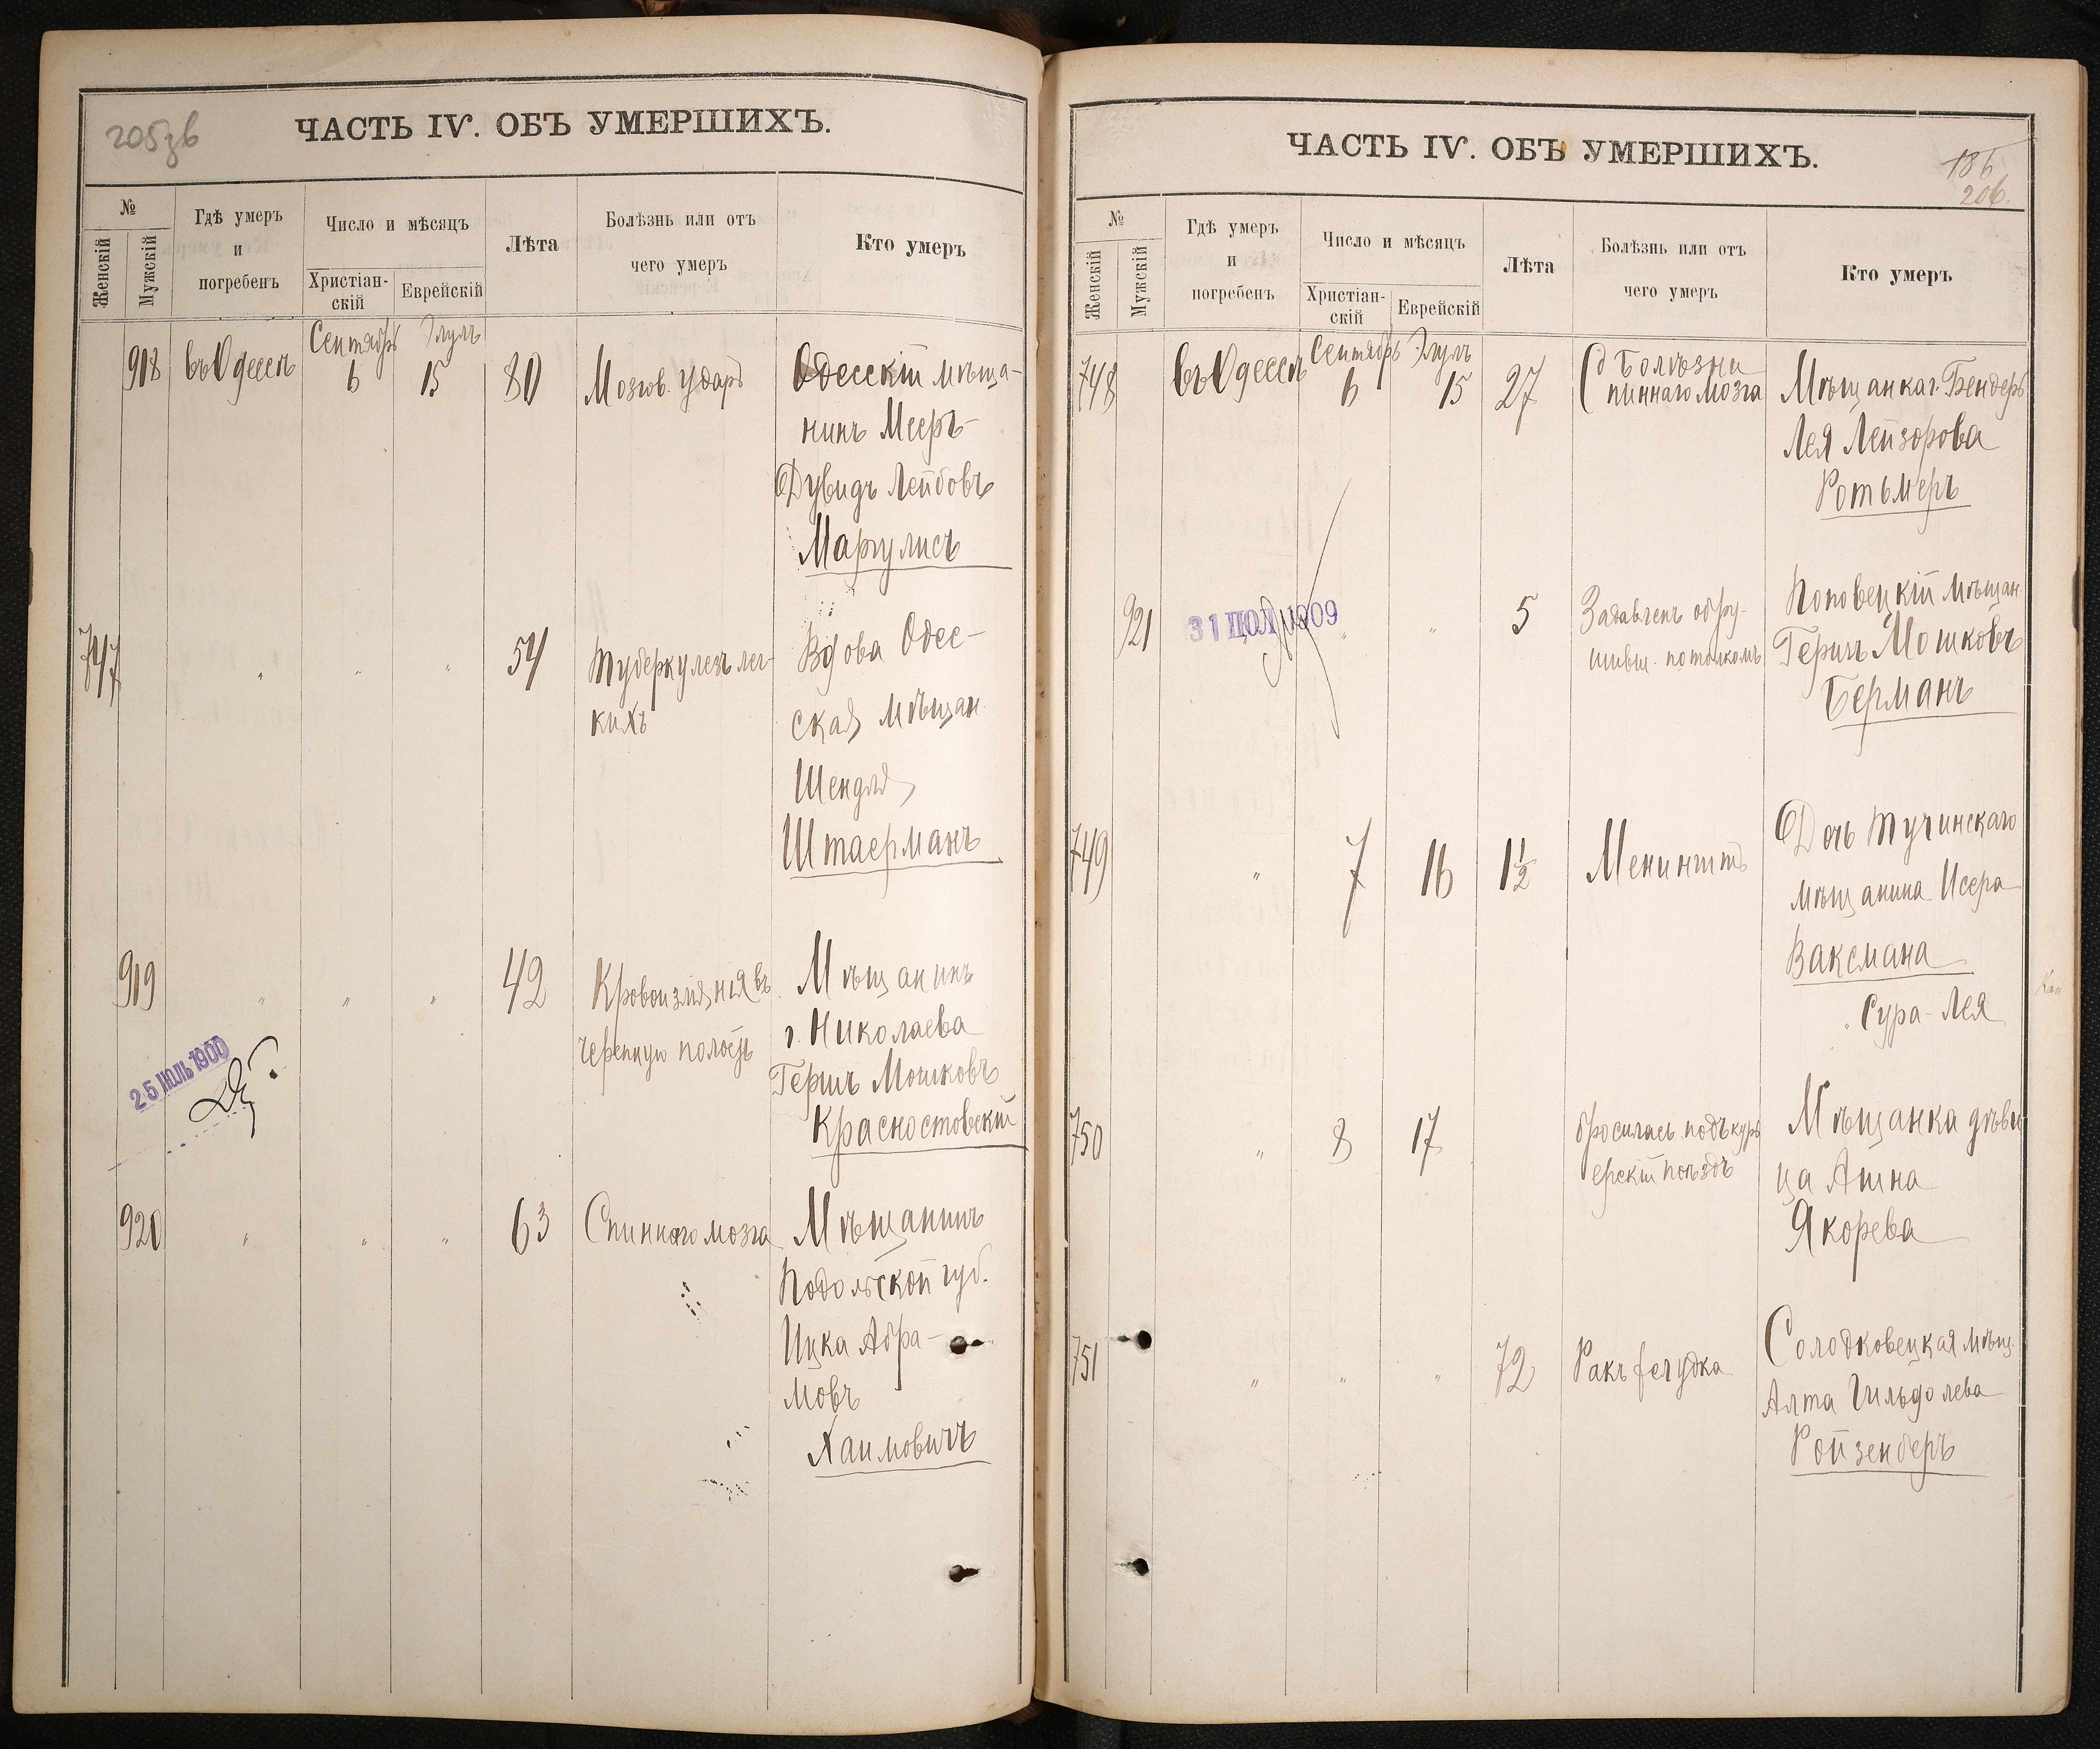 205 зв
ЧАСТЬ IV. ОБЪ УМЕРШИХЪ.
№
Женскій
Мужскій
Гдѣ умеръ
и
погребенъ
Число и мѣсяцъ
Христіан-
скій
Еврейскій
Лѣта
Болѣзнь или отъ
чего умеръ
Кто умеръ
Сентябрь Элулъ
918 въ Одессѣ 6 15 80 Мозгов. ударъ Одесскій мѣща-
нинъ Мееръ-
Дувидъ Лейбовъ
Маргулисъ
747 " " " 54 Туберкулезъ лег-
кихъ
Вдова Одес-
ская мѣщан.
Шендля
Штаерманъ
919 " " " 42 Кровоизліянія въ
черепную полость
Мѣщанинъ
г. Николаева
Гершъ Мошковъ
Красностовскій
25 ІЮЛЬ 1900
920 " " " 63 Спинного мозга Мѣщанинъ
Подольской губ.
Ицка Абра-
мовъ
Хаимовичъ
ЧАСТЬ IV. ОБЪ УМЕРШИХЪ.
186
206.
№
Женскій
Мужскій
Гдѣ умеръ
и
погребенъ
Число и мѣсяцъ
Христіан-
скій
Еврейскій
Лѣта
Болѣзнь или отъ
чего умеръ
Кто умеръ
Сентябрь Элулъ
748 въ Одессѣ 6 15 27 Болѣзни
Спиннаго мозга
Мѣщанка г. Бендеръ
Лея Лейзорова
Ротьмеръ
921 " " 5 Задавленъ обру-
шивш. потолкомъ
Поповецкій мѣщан.
Гершъ Мошковъ
Берманъ
31 ІЮЛ 1909
749 " 7 16 1½ Менингитъ Дочь Тучинскаго
мѣщанина Исера
Ваксмана
Сура-Лея
750 " 8 17 бросилась подъ курь-
ерскій поѣздъ
Мѣщанка дѣви-
ца Анна
Якорева
751 " " " 72 Ракъ желудка Солодковецкая мѣщ.
Алта Гильдолева
Ройзенберъ